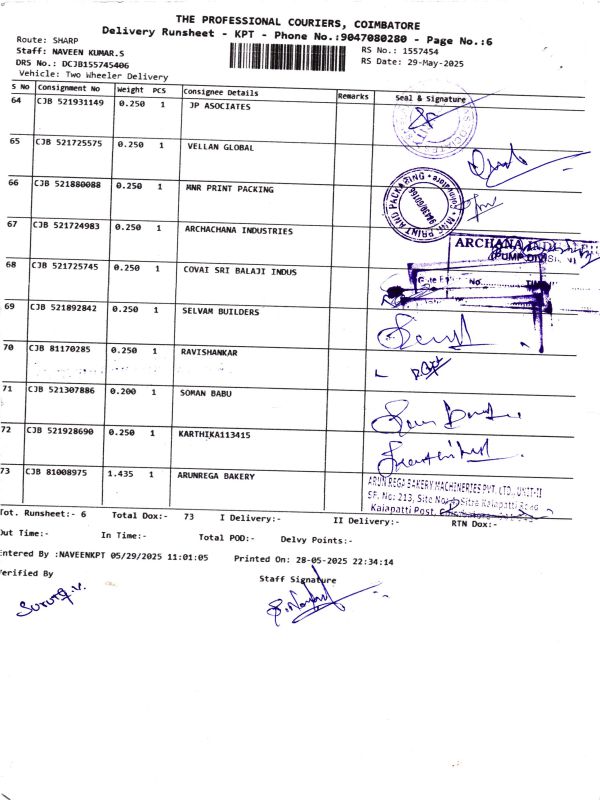 THE PROFESSIONAL COURIERS, COIMBATORE
Delivery Runsheet - KPT - Phone No.:9047080280 - Page No.:6
Route: SHARP
Staff: NAVEEN KUMAR.S
RS No.: 1557454
DRS No.: DCJB155745406
RS Date: 29-May-2025
Vehicle: Two Wheeler Delivery
S No Consignment No Weight PCS Consignee Details Remarks Seal & Signature
64 CJB 521931149 0.250 1 JP ASOCIATES
65 CJB 521725575 0.250 1 VELLAN GLOBAL
66 CJB 521880088 0.250 1 MNR PRINT PACKING
PRINT AND PACKAGING
67 CJB 521724983 0.250 1 ARCHACHANA INDUSTRIES
ARCHANA INDUSTRIES
(PUMP DIVISION)
68 CJB 521725745 0.250 1 COVAI SRI BALAJI INDUS
No.
69 CJB 521892842 0.250 1 SELVAM BUILDERS
70 CJB 81170285 0.250 1 RAVISHANKAR
71 CJB 521307886 0.200 1 SOMAN BABU
72 CJB 521928690 0.250 1 KARTHIKA113415
73 CJB 81008975 1.435 1 ARUNREGA BAKERY
ARUN REGA BAKERY MACHINERIES PVT. LTD., UNIT-II
SF. No: 213, Site No: Sitra Kalapatti Road
Kalapatti Post,
Tot. Runsheet:- 6 Total Dox:- 73 I Delivery:- II Delivery:- RTN Dox:-
Out Time:- In Time:- Total POD:- Delvy Points:-
Entered By :NAVEENKPT 05/29/2025 11:01:05 Printed On: 28-05-2025 22:34:14
Verified By Staff Signature